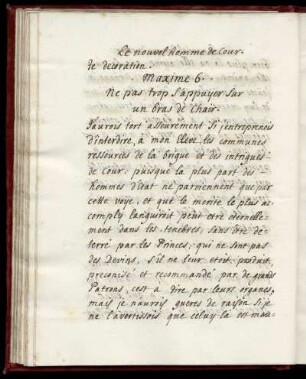 Le nouvel homme de Cour.
de decoration.
Maxime 6.
Ne pas trop s'appuyer sur
un bras de Chair.
J'aurois tort asseurement si j'entreprenois
d'interdire, à mon Eleve, les communes
ressources de la brigue et des intrigues
de Cour, puisque la plus part des
hommes d'etat ne parviennent que par
cette voye, et que le merite le plus ac
comply languiroit peut etre eternelle
ment dans les tenebres, sans être de
terré par les Princes, qui ne sont pas
des Devins, s'il ne leur etoit produit,
preconisé et recommandé par de grands
Patrons, c'est a dire par leurs organes,
mais je n'aurois gueres de raison si je
ne l'avertissois que celuy la est mau